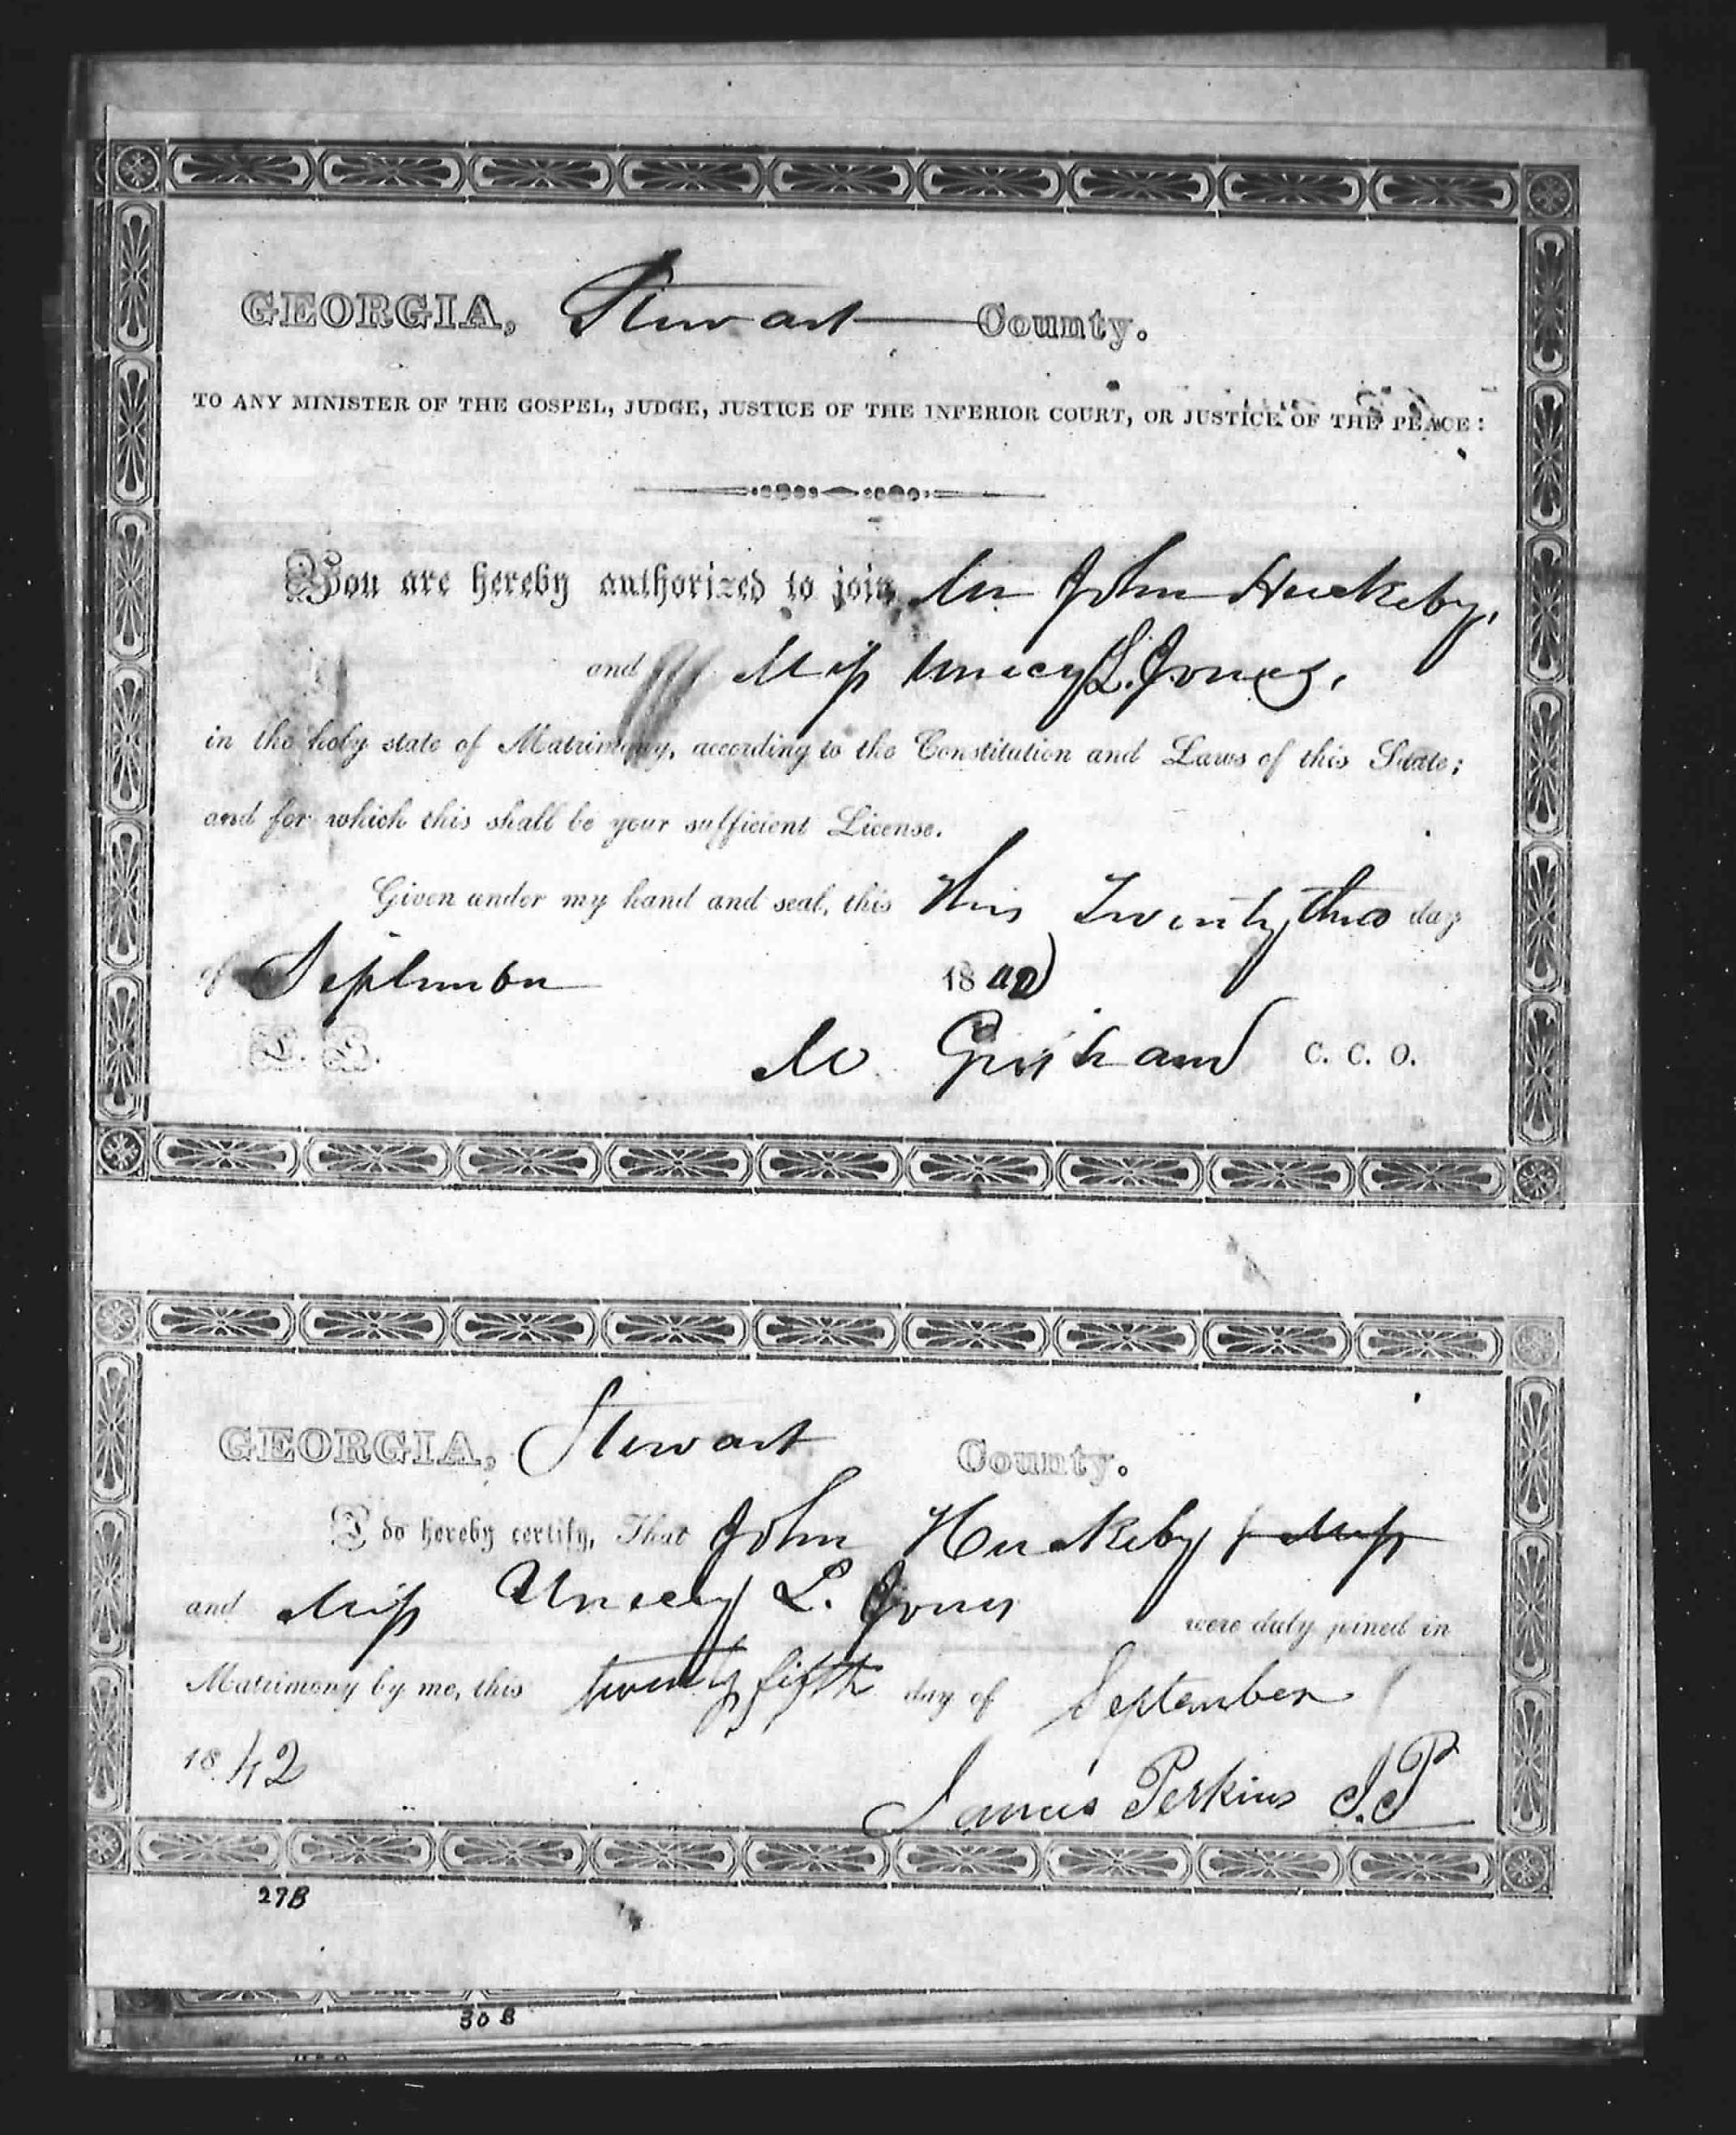 GEORGIA, Stewart County.
TO ANY MINISTER OF THE GOSPEL, JUDGE, JUSTICE OF THE INFERIOR COURT, OR JUSTICE OF THE PEACE:
You are hereby authorized to join Mr John Huckeby,
and Miss Unicy L. Jones,
in the holy state of Matrimony, according to the Constitution and Laws of this State;
and for which this shall be your sufficient License.
Given under my hand and seal, this this Twenty three day
of September 1842
L. S. M Grisham C. C. O.
GEORGIA, Stewart County.
I do hereby certify, That John Huckeby & Miss
and Miss Unicey L. Jones were duly joined in
Matrimony by me, this twenty fifth day of September
1842
James Perkins J.P
27B
30 B